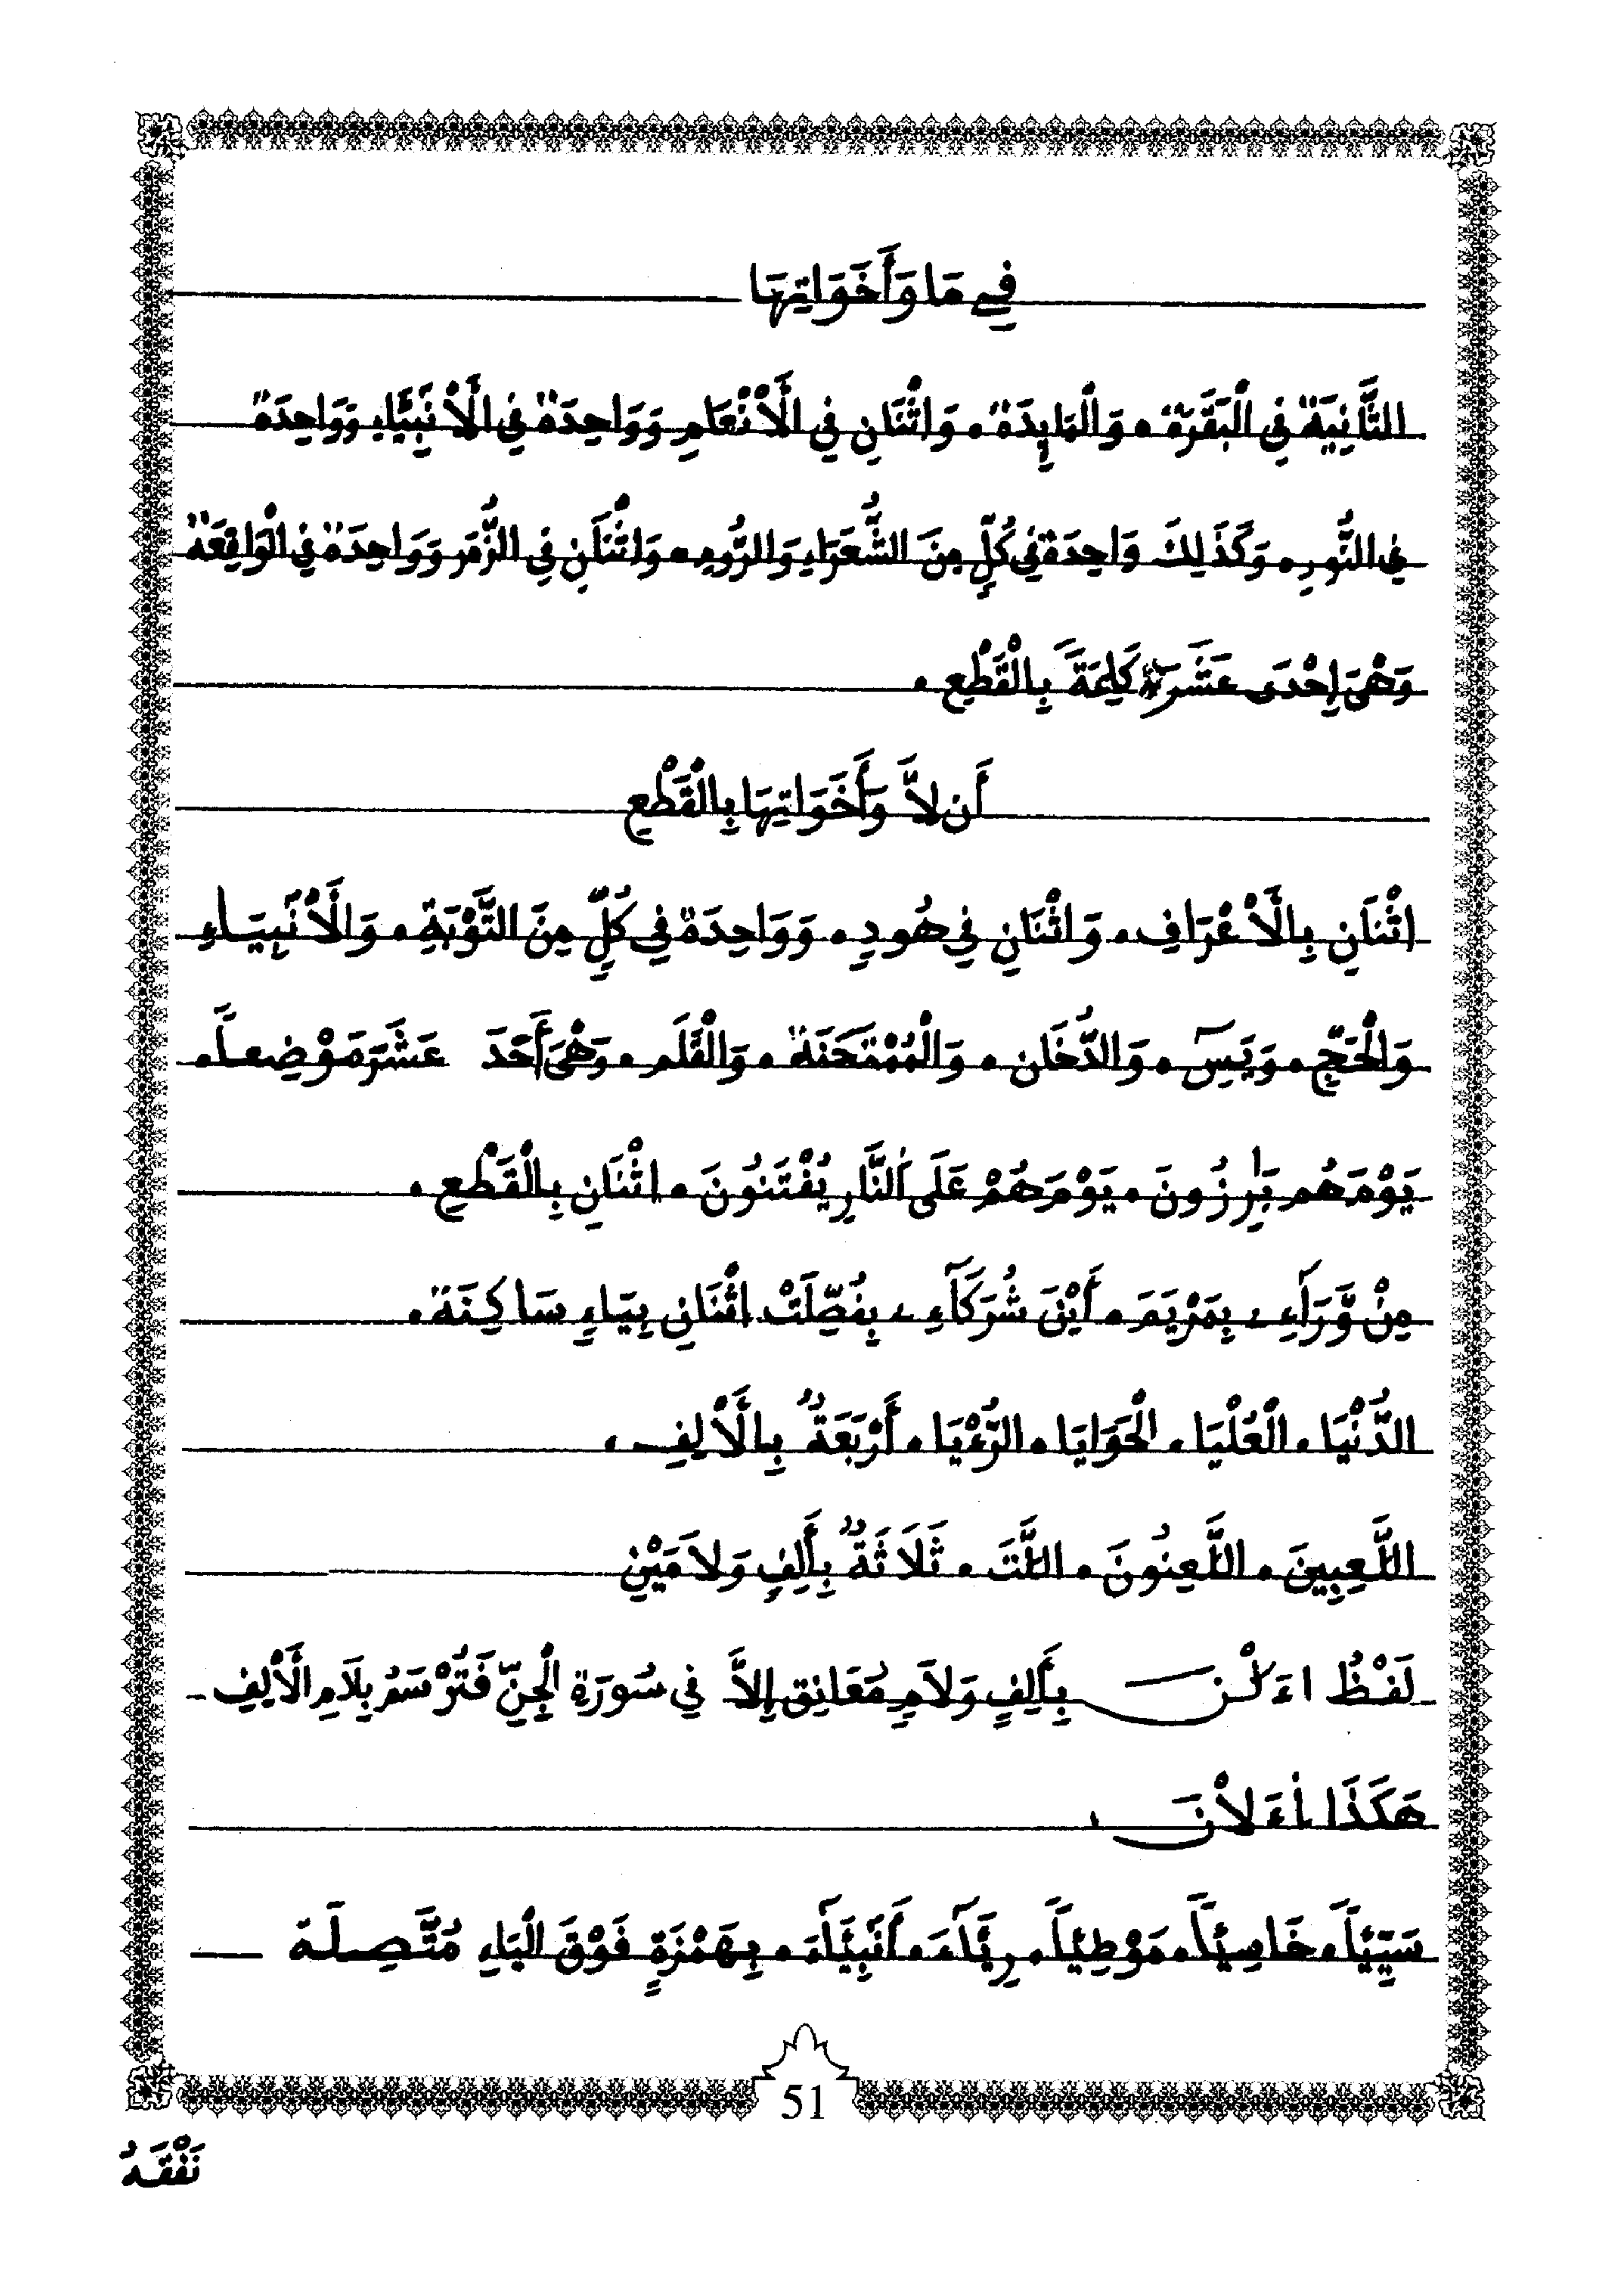 فِے مَا وَأَخَوَاتِهَا
الثَّانِيَةُ فِي الْبَقَرَةِ، وَالْمَايِدَةِ، وَاثْنَانِ فِي الْأَنْعَامِ وَوَاحِدَةٌ فِي الْأَنْبِيَّاءِ وَوَاحِدَةٌ
فِي النُّورِ، وَكَذَلِكَ وَاحِدَةٌ فِي كُلٍّ مِنَ الشُّعَرَاءِ وَالرُّومِ، وَاثْنَانِ فِي الزُّمَرِ وَوَاحِدَةٌ فِي الْوَاقِعَةِ
وَهْيَ إِحْدَى عَشَرَ كَلِمَةً بِالْقَطْعِ.
أَن لاَّ وَأَخَوَاتِهَا بِالْقَطْعِ
اثْنَانِ بِالْأَعْرَافِ، وَاثْنَانِ فِي هُودٍ، وَوَاحِدَةٌ فِي كُلٍّ مِنَ التَّوْبَةِ، وَالْأَنْبِيَاءِ
وَالْحَجِّ، وَيَسِ، وَالدُّخَان، وَالْمُمْتَحَنَةِ، وَالْقَلَمِ، وَهْيَ أَحَدَ عَشَرَ مَوْضِعاً.
يَوْمَ هُم بَٰرِزُونَ، يَوْمَ هُمْ عَلَى اَلنَّارِ يُفْتَنُونَ، اثْنَانِ بِالْقَطْعِ.
مِنْ وَّرَآءِے، بِمَرْيَمَ، أَيْنَ شُرَكَآءِے، بِفُصِّلَتْ اثْنَانِ بِيَاءٍ سَاكِنَة.
الدُّنْيَا، الْعُلْيَا، الْحَوَايَا، الرُّءْيَا، أَرْبَعَةٌ بِالْأَلِفِ،
اللَّعِبِينَ، اللَّعِنُونَ، اللَّتَ، ثَلَاثَةٌ بِأَلِفٍ وَلاَمَيْنِ
لَفْظُ اءَلْنَ بِأَلِفٍ وَلاَمٍ مُعَانِقٍ إِلاَّ فِي سُورَةِ الْجِنِّ فَتُرْسَمُ بِلَامِ الْأَلِفِ
هَكَذَا اءَلاْنَ،
سَيِّئاً، خَاسِئاً، مَوْطِئاً، رِئَآءَ، أَنْبِئَآءَ، بِهَمْزَةٍ فَوْقَ الْيَاءِ مُتَّصِلَة
51
نَفْقَهُ